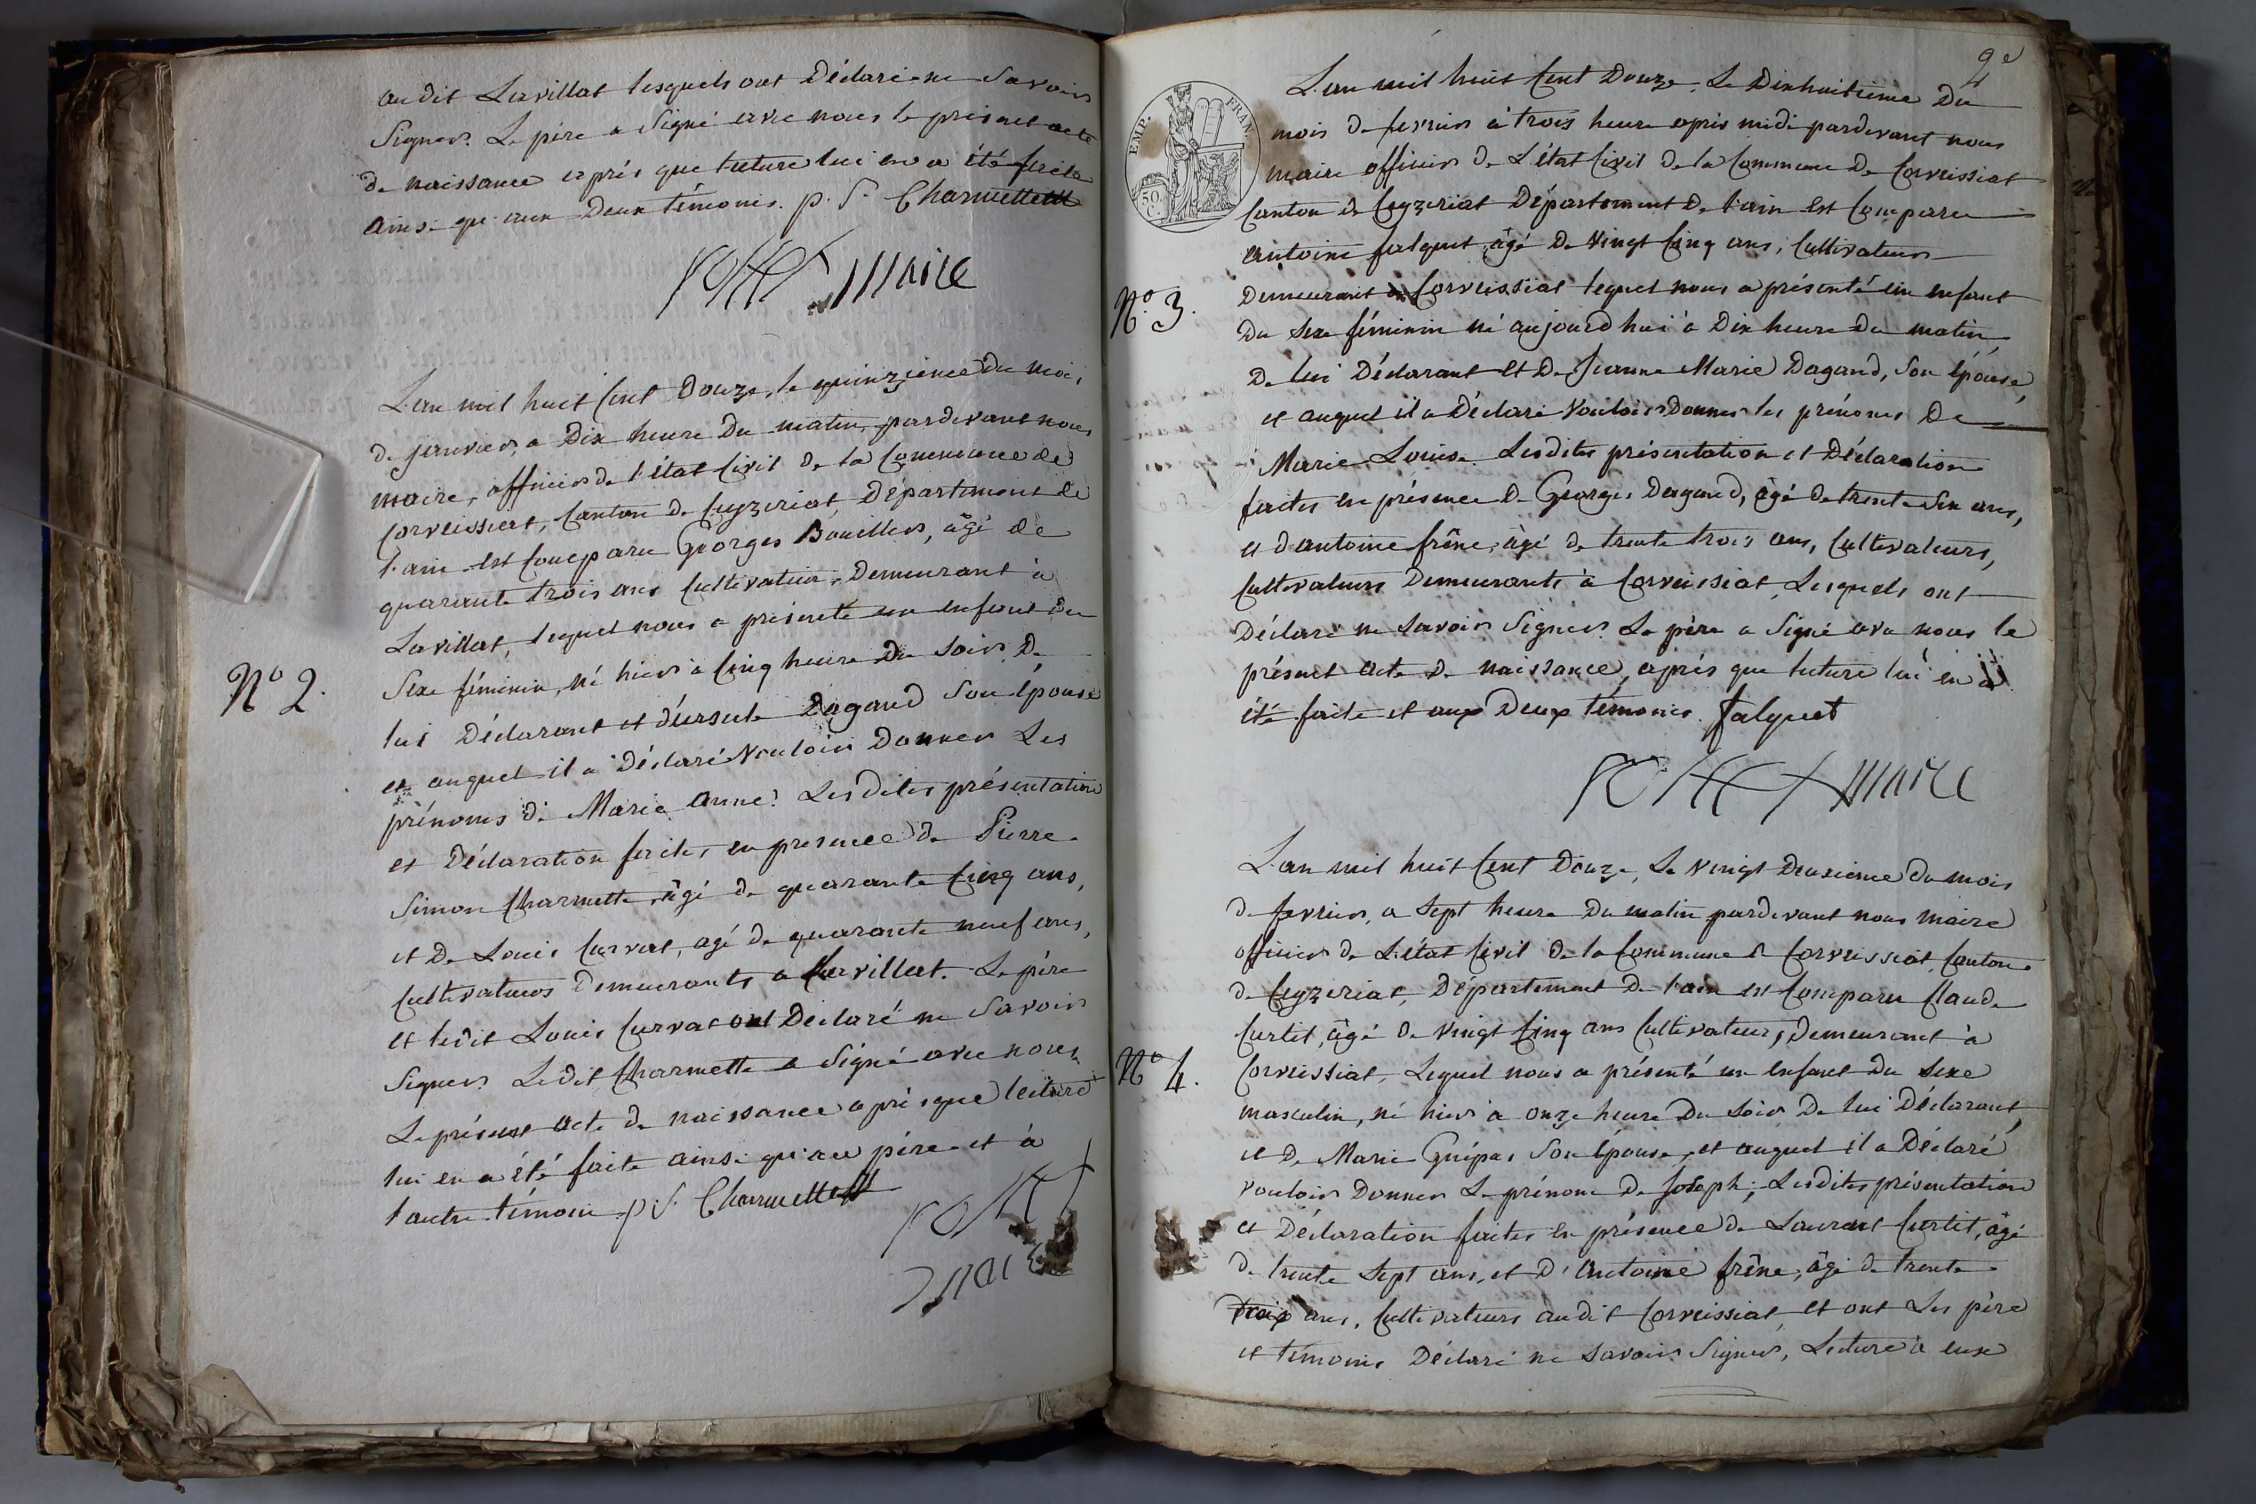 audit Lavillat lesquels ont Déclaré ne Savoir
Signer. Le père a Signé avec nous le présent acte
de naissance après que lecture lui en a été faite
ainsi qu'aux Deux témoins. p. S. Charmette
maire
L'an mil huit Cent Douze, le quinzième du mois
de janvier, a Dix heure Du matin, pardevant nous
maire, officier de l'état Civil de la Commune de
Corveissiat, Canton de Ceyzeriat, Département de
l'ain est Comparu Georges Bouillers, âgé de
quarante trois ans Cultivateur, Demeurant à
Lavillat, lequel nous a présenté un enfant du
N° 2.
Sexe féminin, né hier à Cinq heure Du Soir, De
lui Déclarant et d'ursule Dagand Son Epouse
et auquel il a Déclaré Vouloir Donner Les
prénoms de Marie anne. Lesdites présentation
et Déclaration faites en presence de Pierre
Simon Charmette, âgé de quarante Cinq ans,
et De Louis Curvat, agé de quarante neuf ans,
Cultivateurs Demeurants a Lavillat. Le père
et ledit Louis Curvat ont Déclaré ne Savoir
Signer. Ledit Charmette a Signé avec nous
Le présent acte de naissance après que lecture
lui en a été faite ainsi qu'au père et à
l'autre témoin p S. Charmette
maire
2e
EMP. FRAN.
50 C.
L'an mil huit Cent Douze, Le Dixhuitième Du
mois de fevrier à trois heure après midi pardevant nous
maire officier de L'état Civil de la Commune De Corveissiat
Canton de Ceyzeriat Département De l'ain est Comparu
antoine falquet, âgé De Vingt Cinq ans, Cultivateur
N° 3.
Demeurant à Corveissiat lequel nous a présenté un enfant
Du Sexe féminin né aujourd'hui à Dix heure Du matin
De lui Déclarant et De Jeanne Marie Dagand, Son Epouse
et auquel il a Déclaré Vouloir Donner les prénoms De
Marie Louise. Lesdites présentation et Déclaration
faites en présence de Georges Dagand, âgé de trente Six ans,
et d'antoine frêne, âgé de trente trois ans, Cultivateurs,
Cultivateurs Demeurants à Corveissiat, Lesquels ont
Déclaré ne Savoir Signer. Le père a Signé avec nous le
présent acte de naissance, après que lecture lui en a
été faite et aux Deux témoins. falquet
maire
L'an mil huit Cent Douze, Le Vingt Deuxième du mois
de fevrier, a Sept heure Du matin pardevant nous maire
officier de L'état Civil de la Commune de Corveissiat, Canton
de Ceyzeriat, Département De l'ain est Comparu Claude
Curtit, âgé De Vingt Cinq ans Cultivateur, Demeurant à
N° 4.
Corveissiat, Lequel nous a présenté un enfant Du Sexe
masculin, né hier à onze heure Du Soir De lui Déclarant,
et De Marie Guépas Son Epouse, et auquel il a Déclaré
vouloir Donner Le prénom De Joseph; Lesdites présentation
et Déclaration faites en présence de Laurent Curtit, âgé
de trente Sept ans, et D'antoine frêne, âgé de trente
trois ans, Cultivateurs audit Corveissiat, et ont Les père
et témoins Déclaré ne Savoir Signer, Lecture à eux